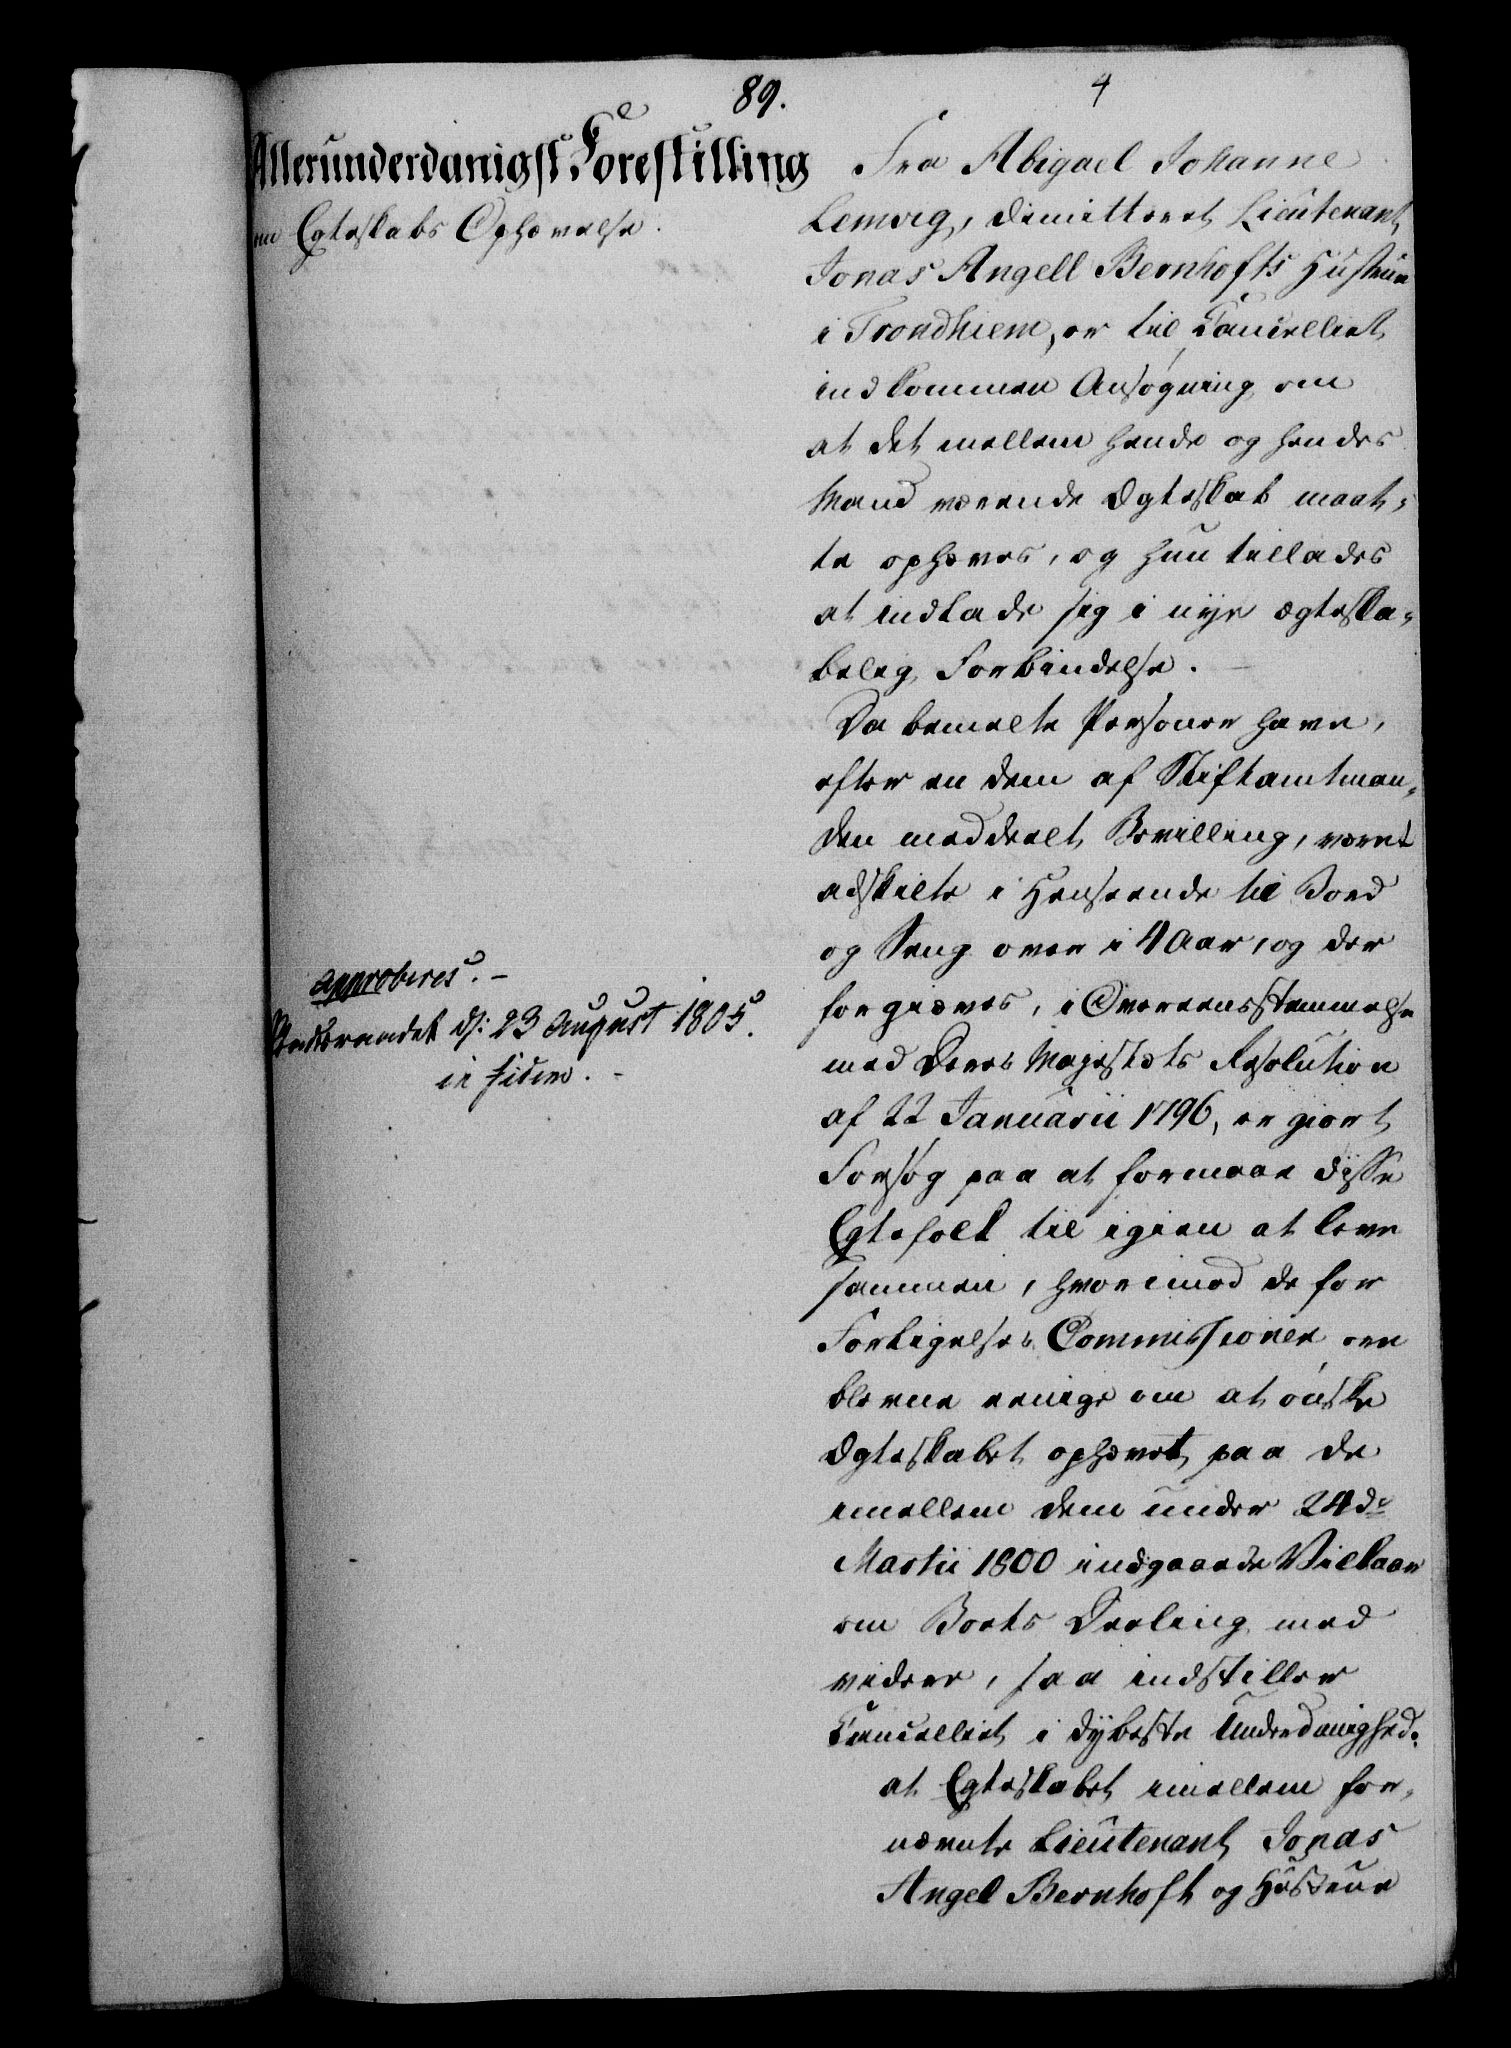 89.
4
Allerunderdanigst Forestilling
om Egteskabs Ophævelse.
approberes. -
Stadsraadet d: 23 August 1805.
in fidem. -
Fra Abigael Johanne
Lemvig, dimitteret Lieutenant
Jonas Angell Bernhofts Hustrue
i Trondhiem, er til Cancelliet
indkommen Ansøgning om
at det mellem hende og hendes
Mand værende Ægteskab maat-
te ophæves, og hun tillades
at indlade sig i nye ægteska-
belig Forbindelse.
Da bemelte Personer have,
efter en dem af Stiftamtman-
den meddeelt Bevilling, været
adskilte i Henseende til Bord
og Seng over i 4 Aar, og der
forgieves, i Overeensstemmelse
med Deres Majestæts Resolution
af 22 Januarii 1796, er giort
Forsøg paa at formaae disse
Egtefolk til igien at leve
sammen, hvorimod de for
Forligelses Commissionen ere
blevne eenige om at ønske
Ægteskabet ophævet paa de
imellem dem under 24de
Martii 1800 indgaaede Vilkaar
om Boets Deeling med
videre, saa indstiller
Cancelliet i dybeste Underdanighed:
at Egteskabet imellem for-
nævnte Lieutenant Jonas
Angel Bernhoft og Hustrue